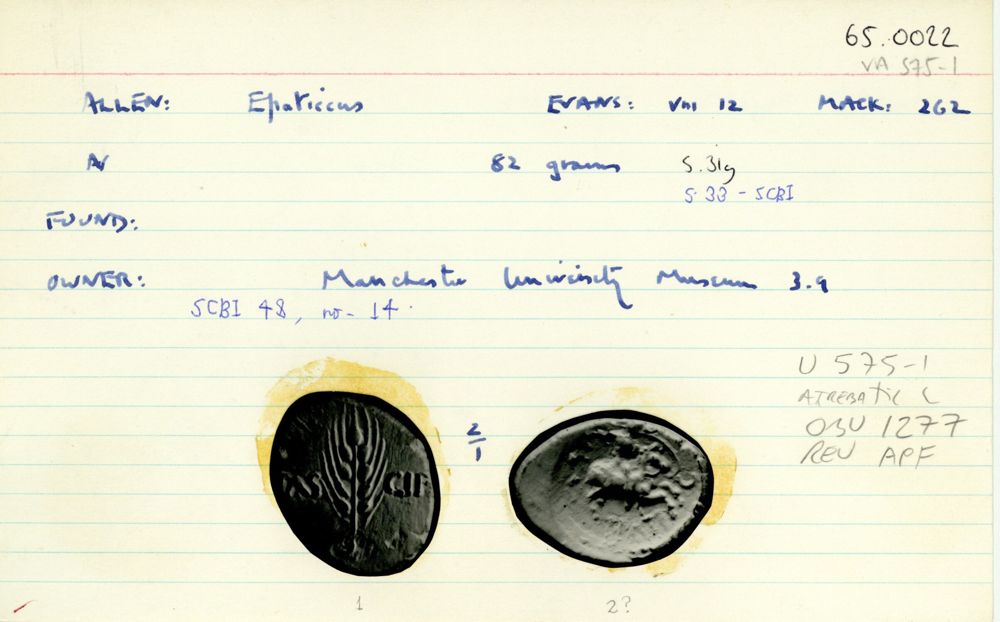 65.0022
VA 575-1
ALLEN: Epaticcus EVANS: VIII 12 MACK: 262
AV 82 grams S.31g
S.33 - SCBI
FOUND:
OWNER: Manchester University Museum 3.9
SCBI 48, no- 14.
U 575-1
ATREBATIC L
OBV 1277
REV APF
2/1
TAS CIF
1 2?